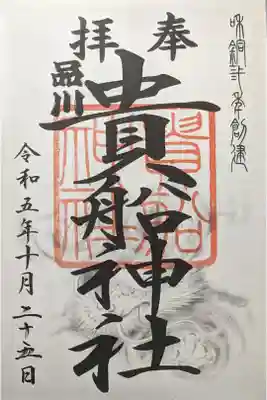 奉拝
和銅弍年創建
品川
貴船神社
貴船
神社
令和五年十月二十五日